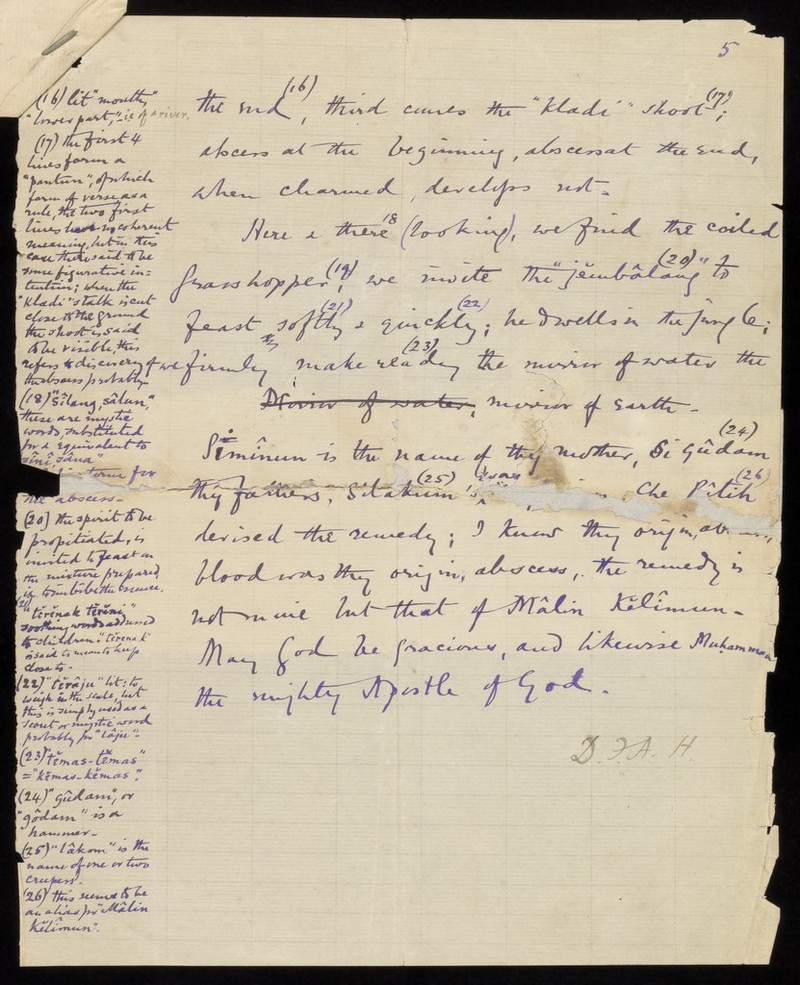 5
the end (16), third comes the "kladi" shoot (17);
abscess at the beginning, abscess at the end,
when charmed, develops not.
Here & there 18 (looking), we find the coiled
grasshopper (19), we invite the "jĕmbâlang" (20) to
feast softly (21) & quickly (22); he dwells in the jungle;
we firmly make ready (23) the mirror of water the
Mirror of water, mirror of earth.
Sîmînun is the name of thy mother, Si Gûdam (24)
thy father's, Silakum (25) was Che Pûtih (26)
devised the remedy; I know thy origin,
blood was thy origin, abscess, the remedy is
not mine but that of Mâlin Kĕlîmun.
May God be gracious, and likewise Muhammad
the mighty Apostle of God.
D.F.A. H.
(16) lit "mouth,"
"lower part," ie of a river.
(17) the first 4
lines form a
"pantun", of which
form of verse as a
rule, the two first
lines have no coherent
meaning, but in this
case there said to be
some figurative in=
tention; when the
"Kladi" stalk is cut
close to the ground
the shoot is said
to be visible, this
refers to discovery of
the abscess probably.
(18) "Sîlang, sâlun",
these are mystic
words, substituted
for a equivalent to
"sînî, sâna"
term for
the abscess.
(20) the spirit to be
propitiated, is
invited to feast on
the mixture prepared,
ie to imbibe the essence.
(21)
"tĕrĕnak tĕrĕni,"
soothing words addressed
to children: "tĕrenak"
is said to mean to keep
close to.
(22) "tĕrâju" lit; to
weigh in the scale, but
this is simply used as a
secret or mystic word
probably for "lâju".
(23) "tĕmas-tĕmas"
="kĕmas-kĕmas".
(24) "gûdam", or
"gôdam" is a
hammer.
(25) "lâkom" is the
name of one or two
creepers.
(26) this seems to be
an alias for "Mâlin
Kĕlîmun".